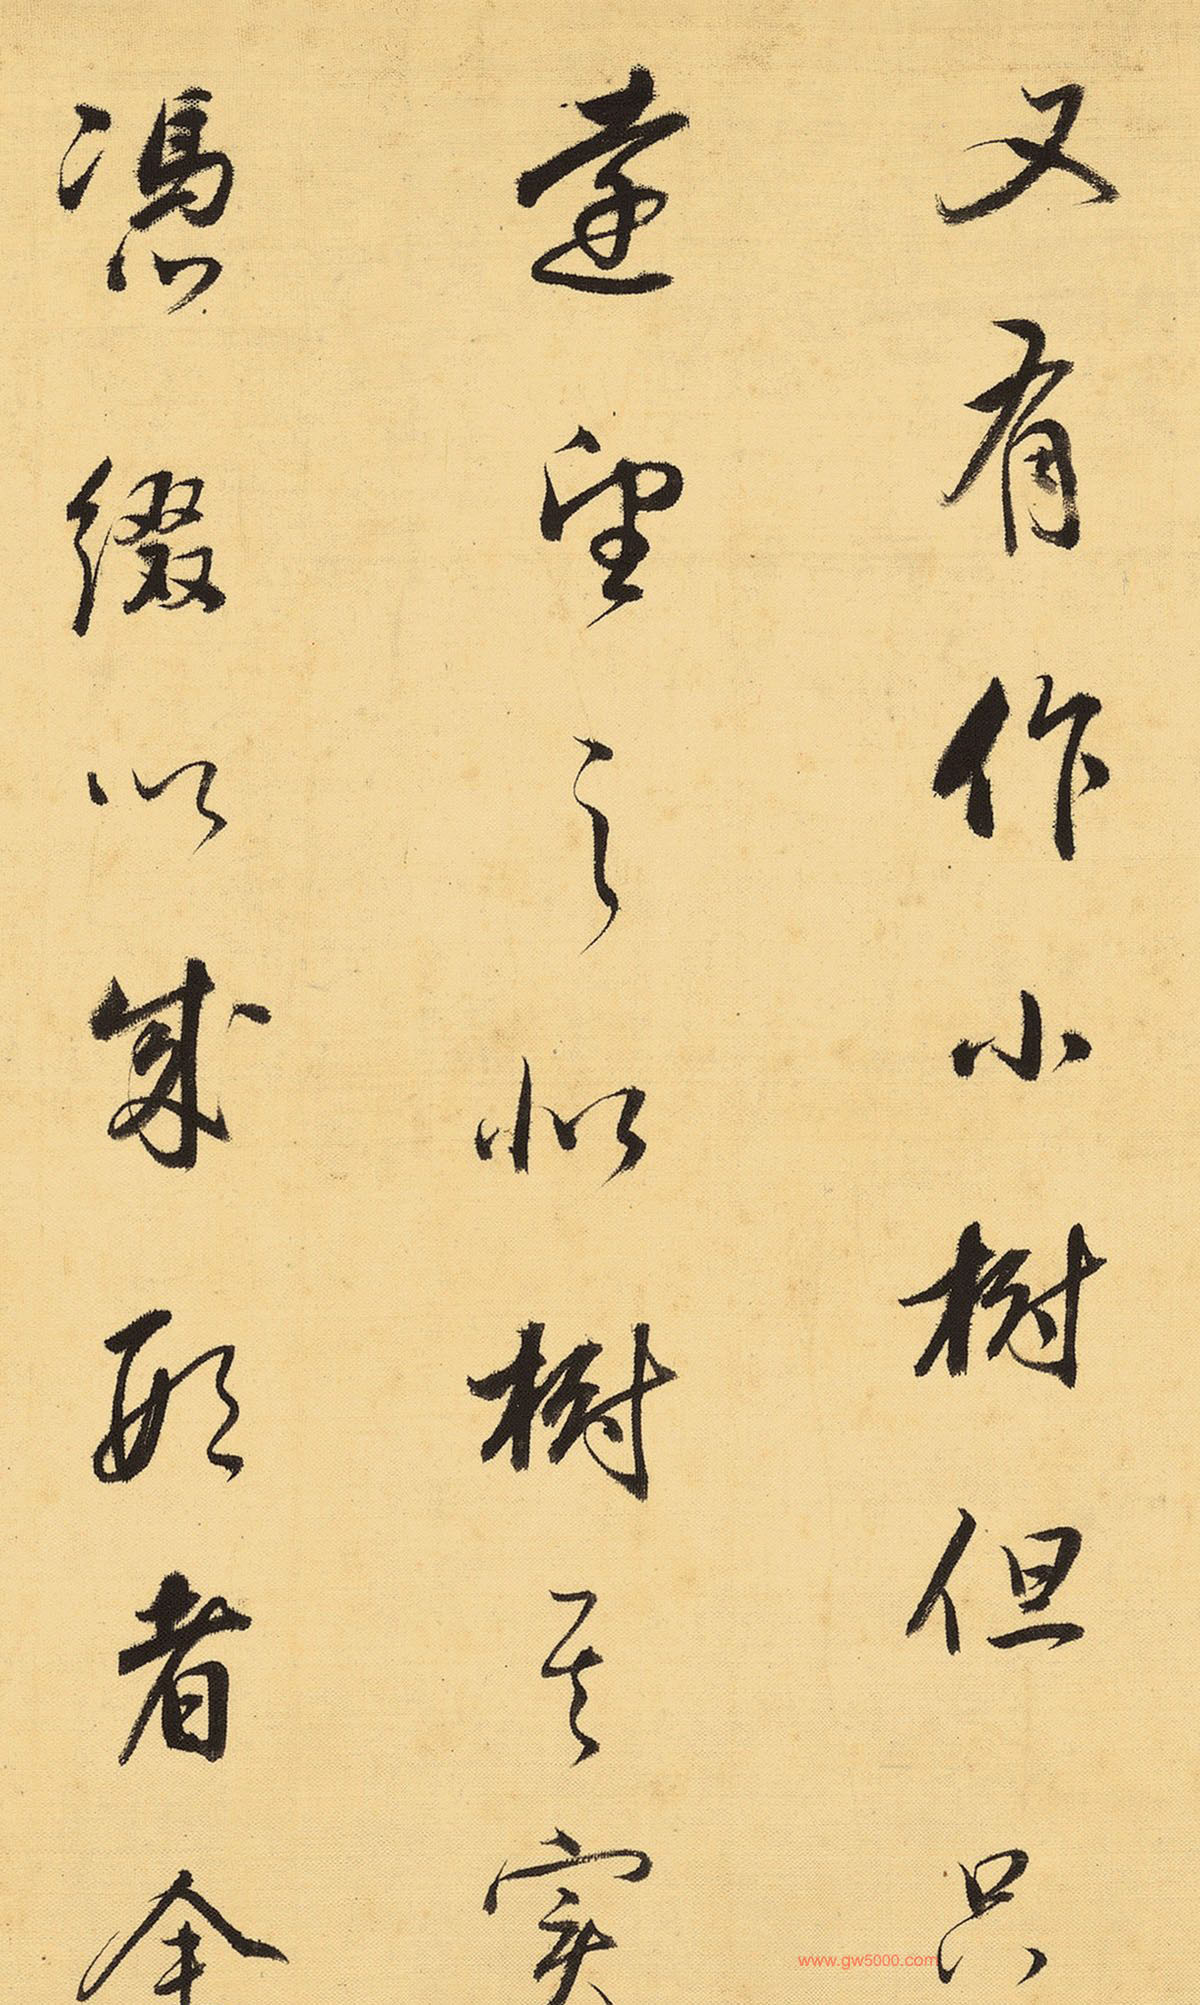 又有作小樹但只
遠望之似樹其實
憑綴以成形者余
www.gw5000.com